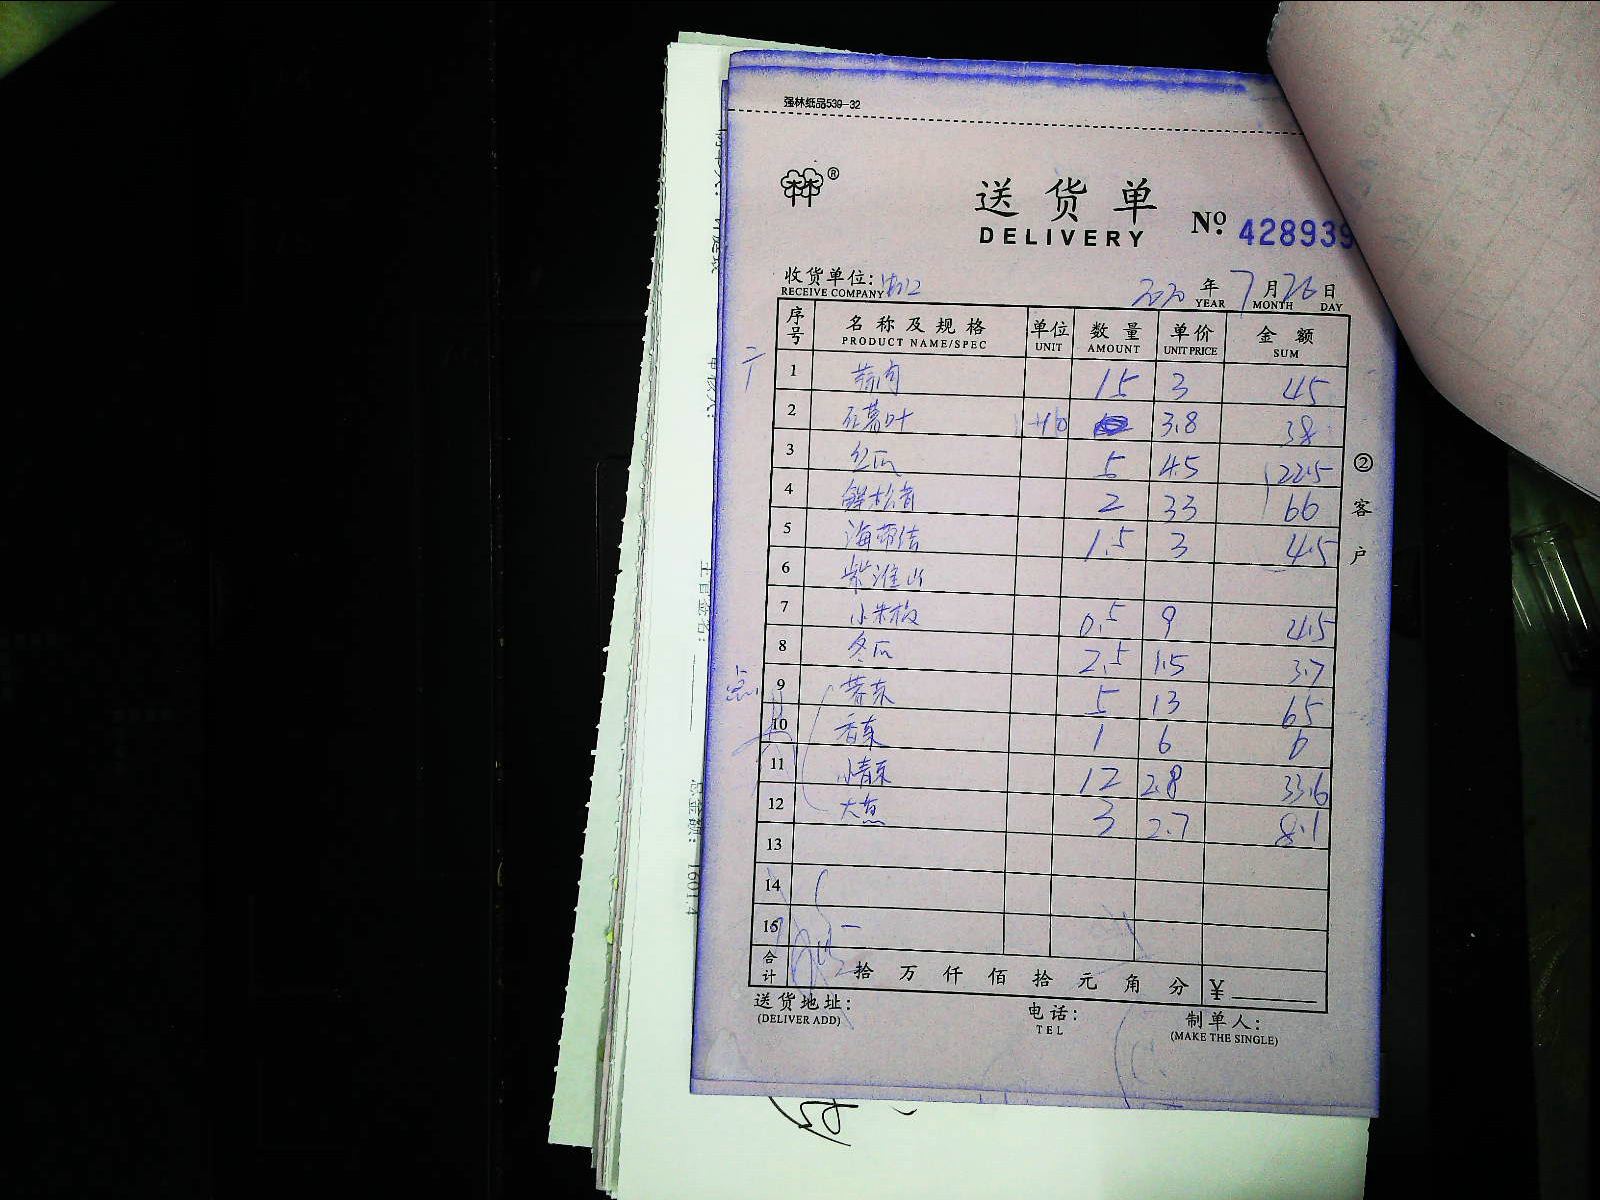 强林纸品539-32
林®
送货单
DELIVERY
Nº 428939
收货单位:
RECEIVE COMPANY
2020 年 7 月 26 日
YEAR MONTH DAY
序号 名称及规格 单位 数量 单价 金额
PRODUCT NAME/SPEC UNIT AMOUNT UNIT PRICE SUM
1 15 3 45
2 红薯叶 3.8 38
3 丝瓜 5 4.5 22.5
4 鲜松茸 2 33 66
5 海带结 1.5 3 4.5
6 紫淮山
7 小米椒 0.5 9 4.5
8 冬瓜 2.5 1.5 3.7
9 5 13 65
10 香菜 1 6 6
11 小青菜 12 2.8 33.6
12 大葱 3 2.7 8.1
13
14
15
合计 拾 万 仟 佰 拾 元 角 分 ¥
送货地址: 电话: 制单人:
(DELIVER ADD) TEL (MAKE THE SINGLE)
②客户
主管签名:
总金额: 1601.4